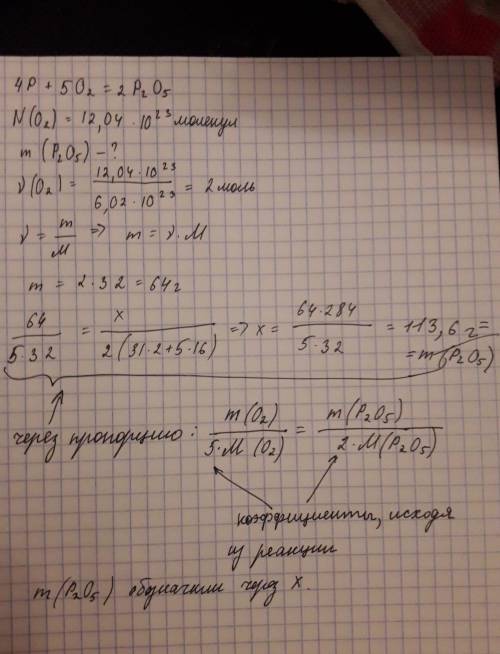 4P + 5O₂ = 2P₂O₅
N(O₂) = 12,04 · 10²³ молекул
m (P₂O₅) - ?
ν(O₂) = 12,04·10²³ / 6,02·10²³ = 2 моль
ν = m/M => m = ν·M
m = 2·32 = 64 г
64 / 5·32 = x / 2(31·2+5·16) => x = 64·284 / 5·32 = 113,6 г =
= m(P₂O₅)
через пропорцию: m(O₂) / 5·M(O₂) = m(P₂O₅) / 2·M(P₂O₅)
коэффициенты, исходя
из реакции
m(P₂O₅) обозначили через x.